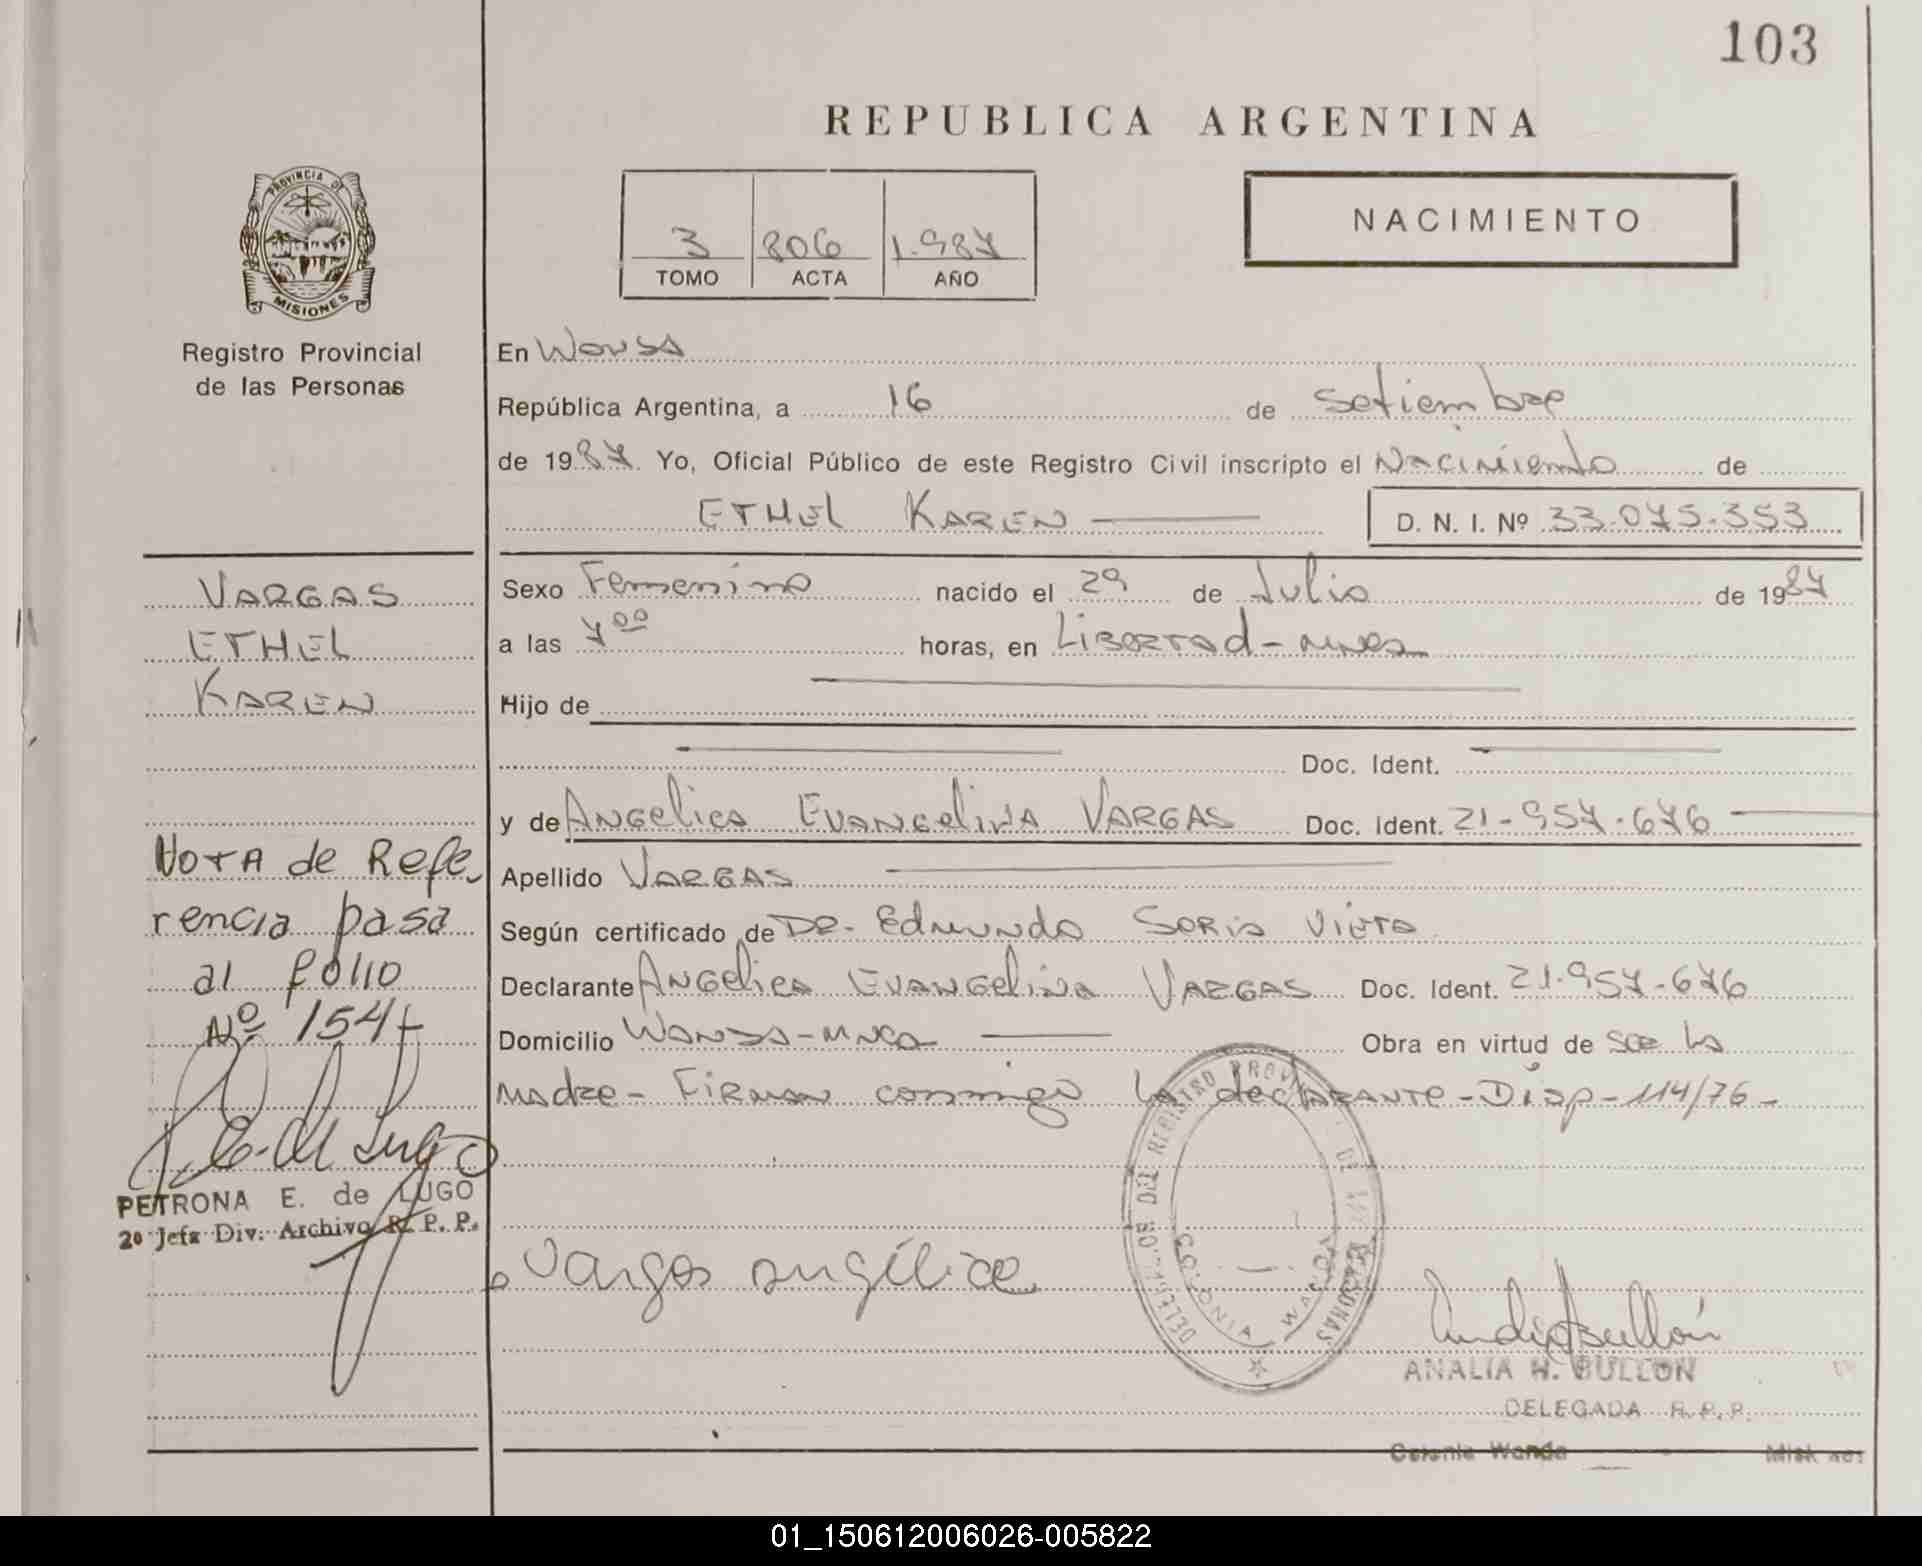 103
REPUBLICA ARGENTINA
PROVINCIA DE
MISIONES
Registro Provincial
de las Personas
3 806 1.987
TOMO ACTA AÑO
NACIMIENTO
En Wanda
República Argentina, a 16 de Setiembre
de 1987. Yo, Oficial Público de este Registro Civil inscripto el Nacimiento de
ETHEL KAREN
D. N. I. Nº 33.075.353
VARGAS
ETHEL
KAREN
Sexo Femenino nacido el 29 de Julio de 1987
a las 7⁰⁰ horas, en Libertad - mnes
Hijo de
Doc. Ident.
y de Angelica Evangelina VARGAS Doc. Ident. 21-957.676
Apellido VARGAS
Según certificado de DR. Edmundo Soria Vieta
Declarante Angelica Evangelina VARGAS Doc. Ident. 21.957.676
Domicilio Wanda - Obra en virtud de ser la
madre - Firman conmigo la declarante - Disp - 114/76 -
NOTA de Refe-
rencia pasa
al folio
Nº 154
PETRONA E. de LUGO
2º Jefa Div. Archivo R. P. P.
Vargas angélica
DEL REGISTRO PROVINCIAL DE LAS PERSONAS
COLONIA WANDA
ANALIA H. BULLON
DELEGADA R. P. P.
Colonia Wanda Misiones
01_150612006026-005822